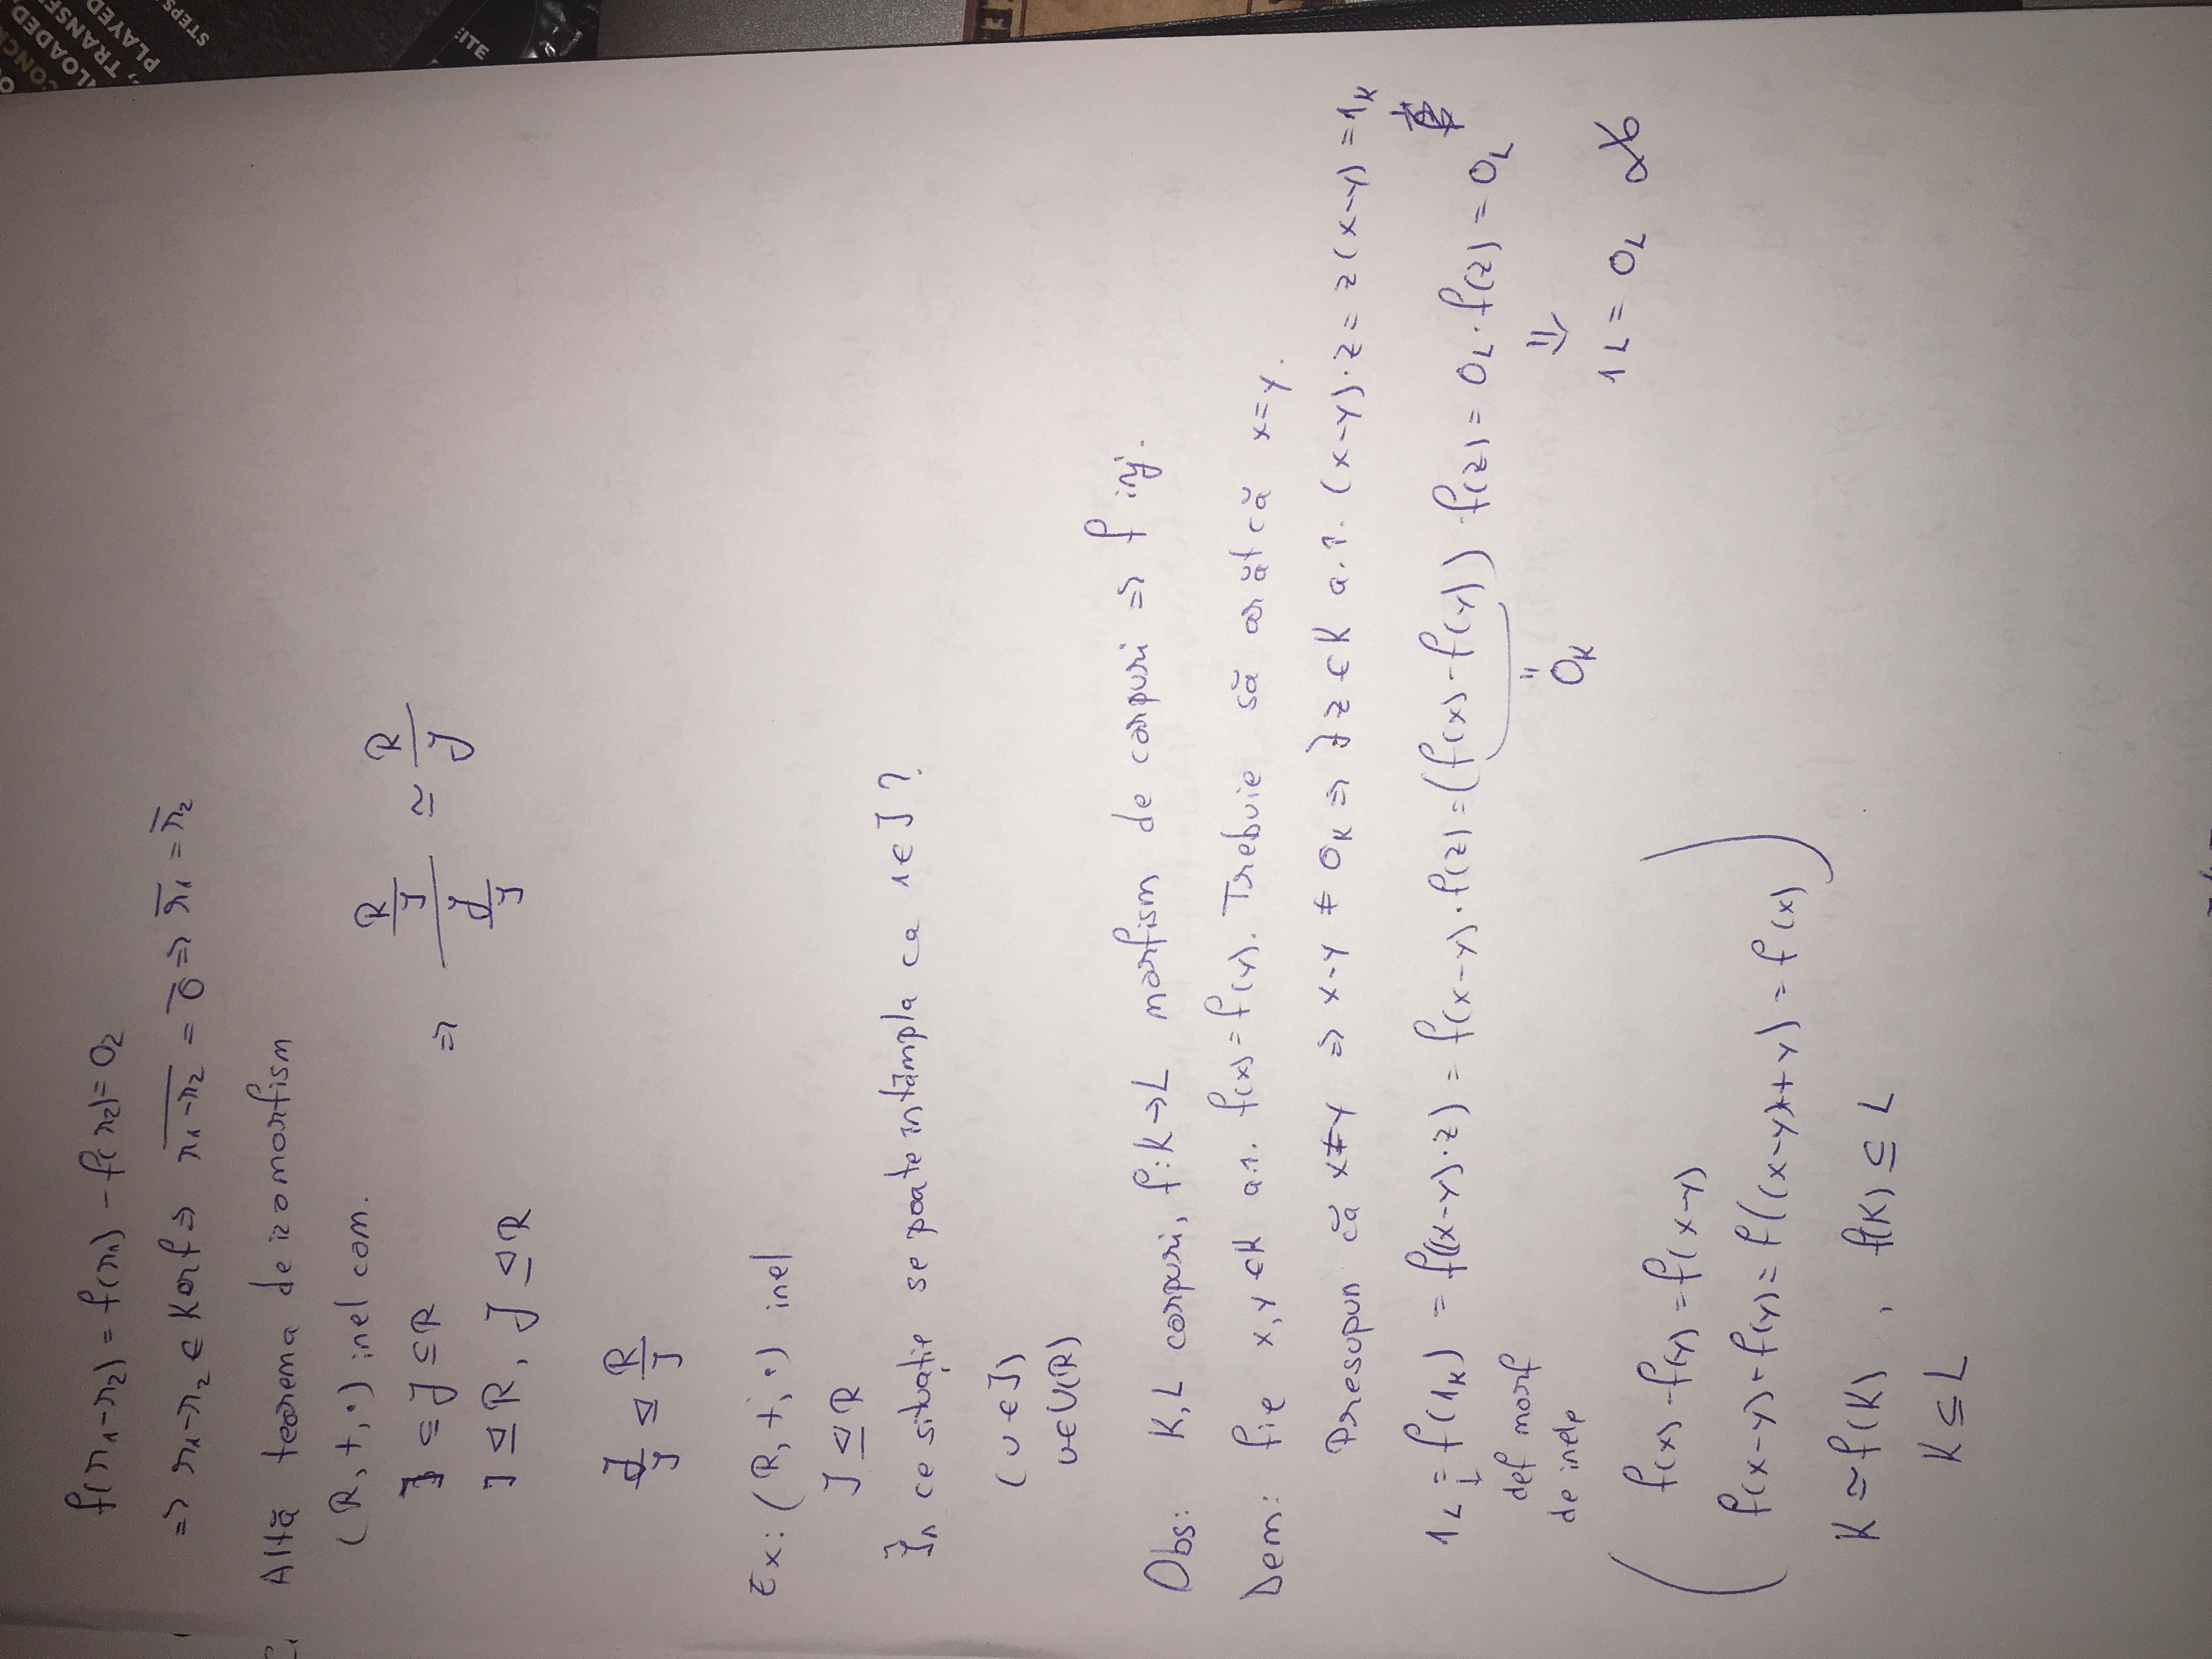 f(r₁-r₂) = f(r₁) - f(r₂) = 0₂
=> r₁-r₂ ∈ Ker f => \overline{r₁-r₂} = \overline{0} => \overline{r₁} = \overline{r₂}
Altă teorema de izomorfism
(R, +, ·) inel com.
I ⊆ J ⊆ R => \frac{\frac{R}{I}}{\frac{J}{I}} ≃ \frac{R}{J}
I ⊴ R, J ⊴ R
\frac{J}{I} ⊴ \frac{R}{I}
Ex: (R, +, ·) inel
I ⊴ R
În ce situație se poate întâmpla ca 1 ∈ I ?
(u ∈ I)
u ∈ U(R)
Obs: K, L corpuri, f: K → L morfism de corpuri => f inj.
Dem: fie x, y ∈ K a.î. f(x) = f(y). Trebuie să arăt că x = y.
Presupun că x ≠ y => x-y ≠ 0_K => ∃ z ∈ K a.î. (x-y)·z = z(x-y) = 1_K
1_L = f(1_K) = f((x-y)·z) = f(x-y)·f(z) = (f(x) - f(y)) · f(z) = 0_L · f(z) = 0_L
↓
def morf
de inele
=
0_K
⇓
1_L = 0_L
f(x) - f(y) = f(x-y)
f(x-y) + f(y) = f((x-y)+y) = f(x)
K ≃ f(K) , f(K) ⊆ L
K ⊆ L
CONC
LOADED,
, TRANSF
PLAYED
STEPS